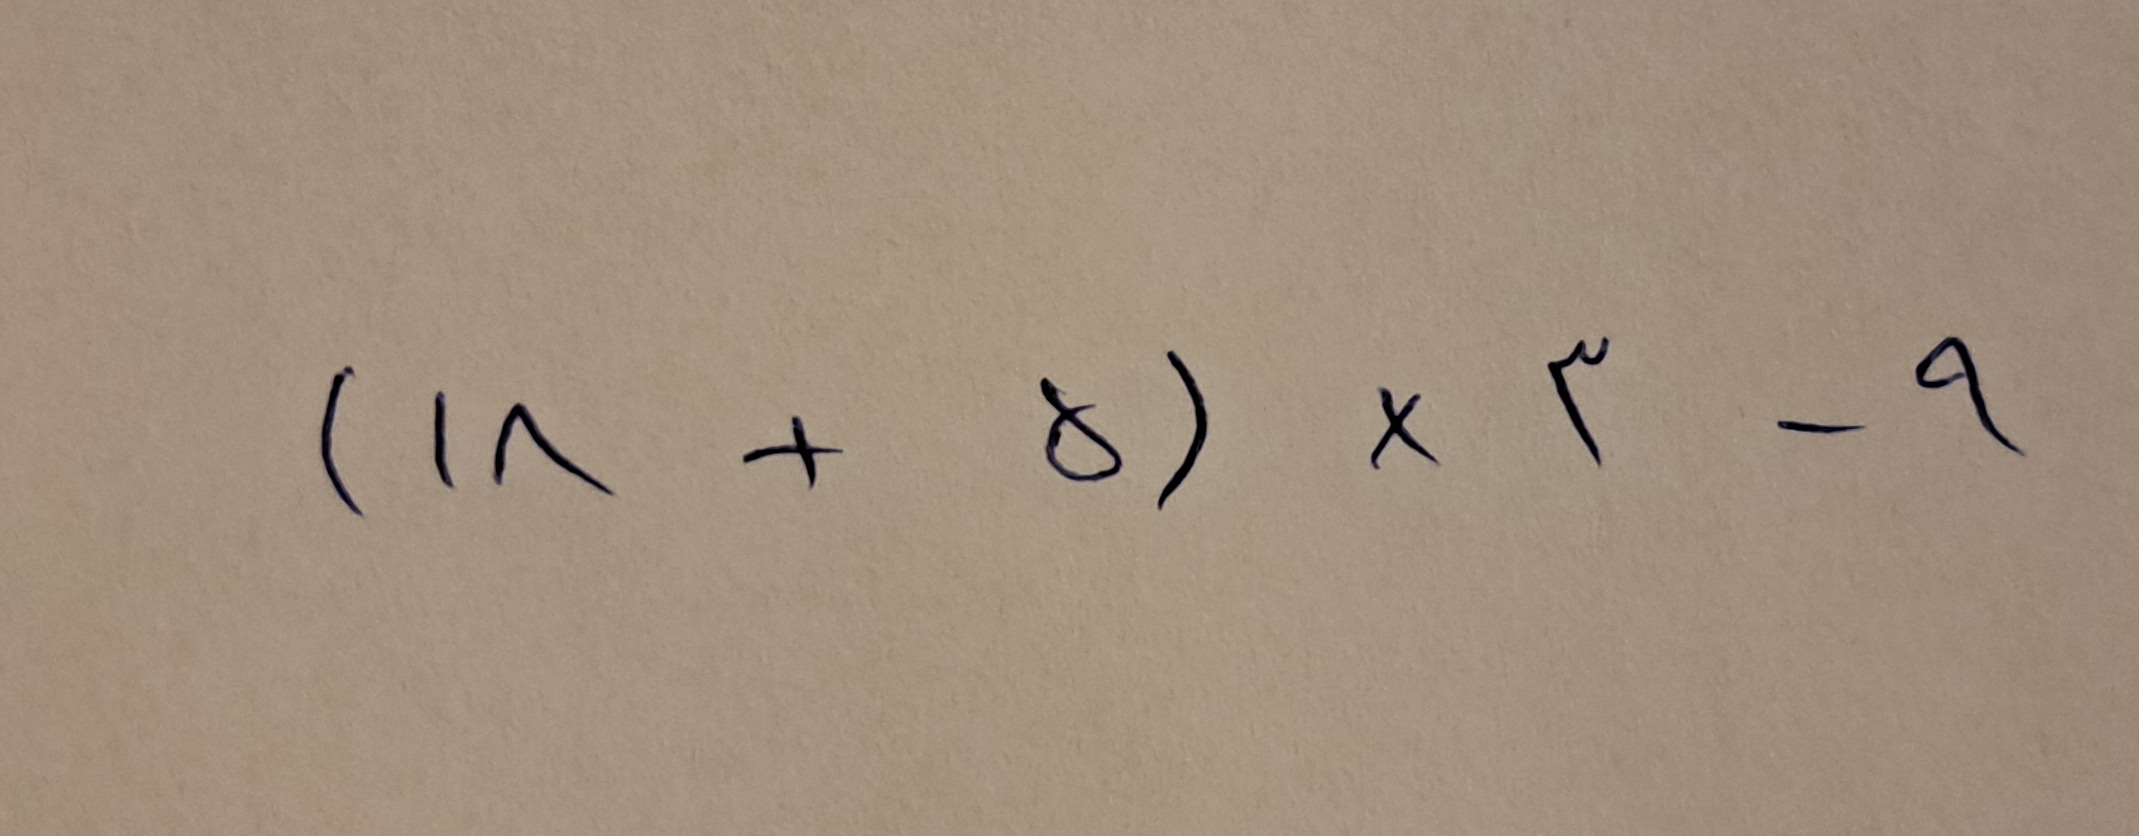 (۱۸ + ۵) × ۳ - ۹